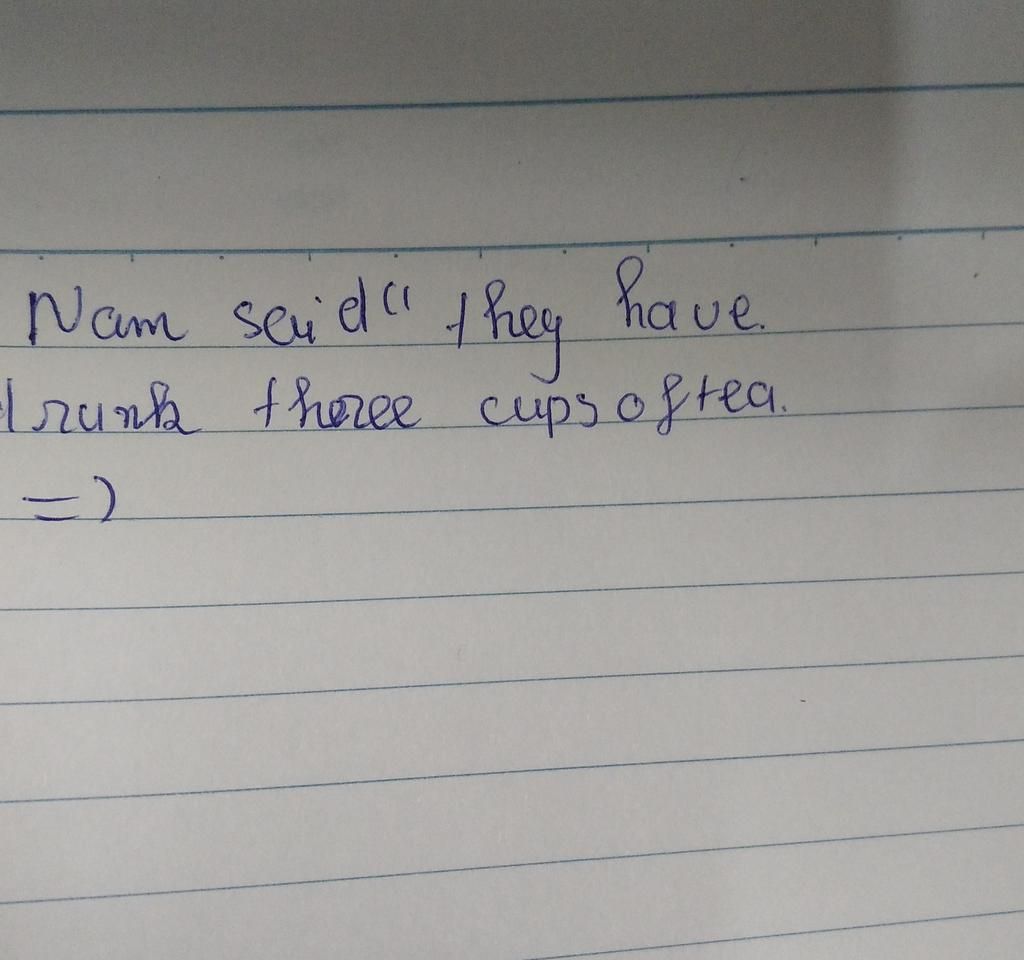 Nam said " they have.
drunk three cups of tea.
=)